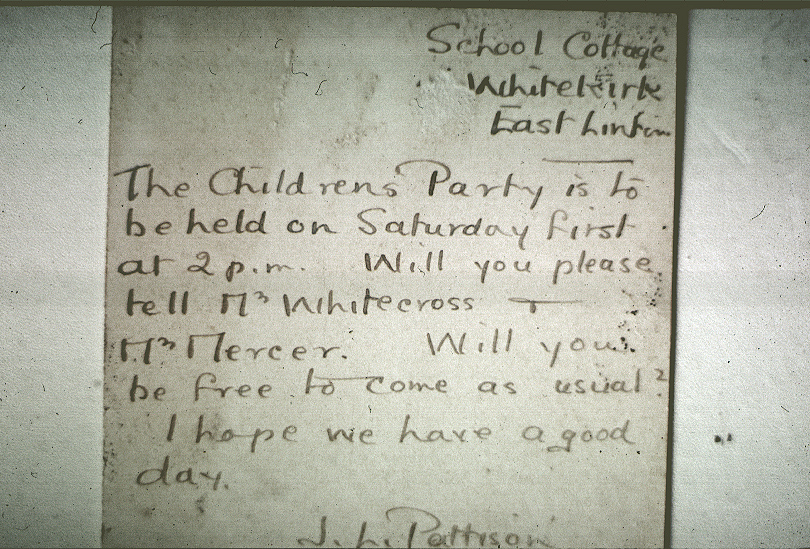 School Cottage
Whitekirk
East Linton
The Childrens Party is to
be held on Saturday first
at 2 p.m. Will you please
tell Mrs Whitecross +
Mrs Mercer. Will you
be free to come as usual?
I hope we have a good
day.
J. L. Pattison